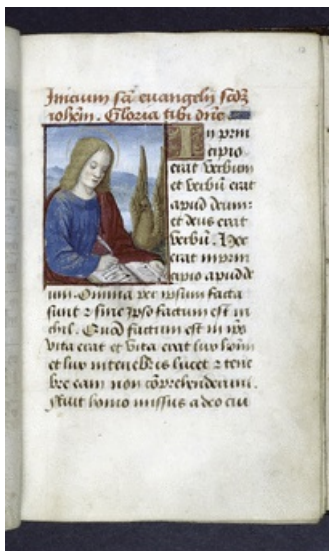 Inicium sc̄i euangelij scd̄z
Iohēm. Gloria tibi dn̄e
In prin
cipio
erat verbum
et verbū erat
apud deum:
et deus erat
verbū. Hoc
erat in prin
cipio apud de
um. Omnia per ipsum facta
sunt ⁊ sine ipso factum est ni
chil. Quod factum est in ip̄o
vita erat et vita erat lux hoīm
et lux in tenebris lucet ⁊ tene
bre eam non cōprehenderunt.
Fuit homo missus a deo cui